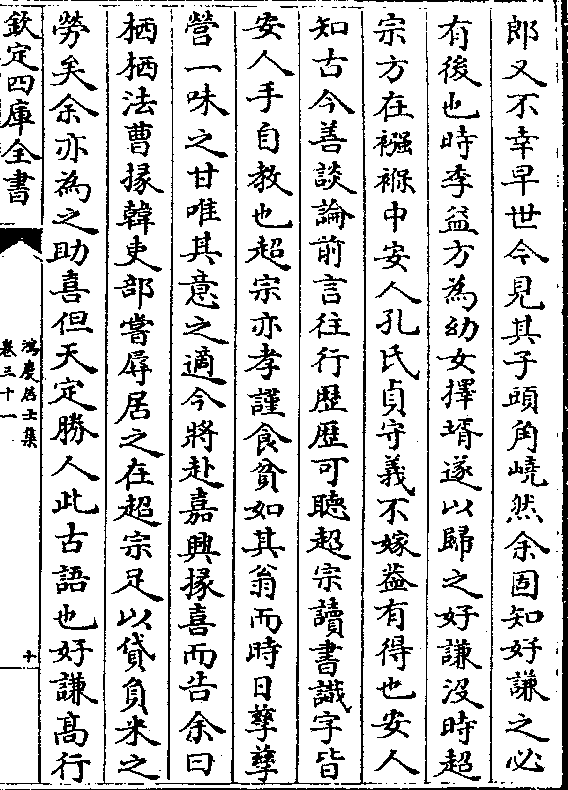 郎又不幸早世今見其子頭角嶢然余固知好謙之必
有後也時季益方為幼女擇壻遂以歸之好謙没時超
宗方在襁褓中安人孔氏貞守義不嫁益有得也安人
知古今善談論前言往行歴歴可聽超宗讀書識字皆
安人手自教也超宗亦孝謹食貧如其翁而時日孳孳
營一味之甘唯其意之適今將赴嘉興掾喜而告余曰
栖栖法曹掾韓吏部嘗辱居之在超宗足以貸負米之
勞矣余亦為之助喜但天定勝人此古語也好謙髙行
欽定四庫全書
鴻慶居士集
卷三十一
十